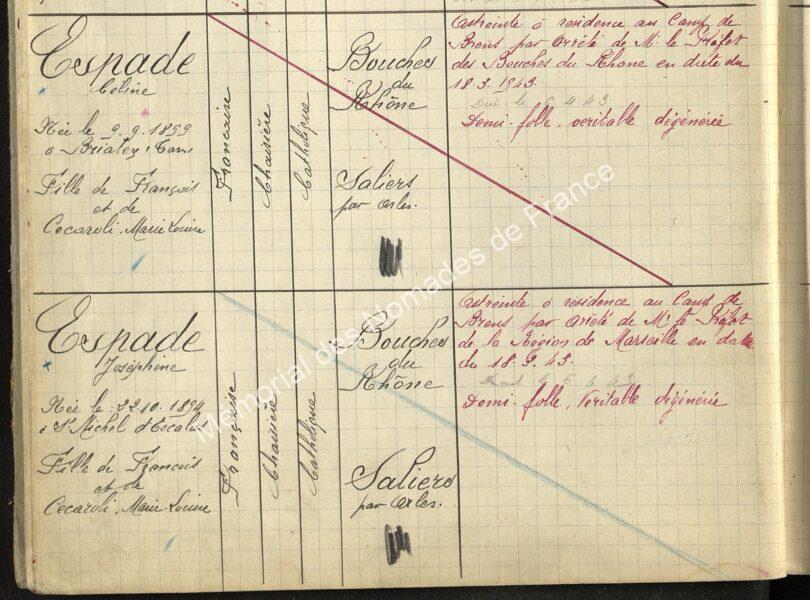 Espade
Céline
Née le 9.9.1899
à Briatex, Tarn
Fille de François
et de
Cecaroli. Marie Louise
Francaise
Chaisière
Catholique
Bouches
du
Rhône
Saliers
par Arles.
Astreinte à résidence au Camp de
Brens par Arrêté de Mr le Préfet
des Bouches du Rhone en date du
18.3.1943.
le 6 4 43
Demi-folle, veritable dégénérée
Espade
Joséphine
Née le 22.10.1894
à St Michel d'Escalus
Fille de Francois
et de
Cecaroli. Marie-Louise
Française
Chaisière
Catholique
Bouches
du
Rhône
Saliers
par Arles.
Astreinte à résidence au Camp de
Brens par Arrêté de Mr le Préfet
de la Région de Marseille en date
du 18.3.43.
6 4 43
Demi-folle. Veritable dégénérée
Mémorial des Nomades de France